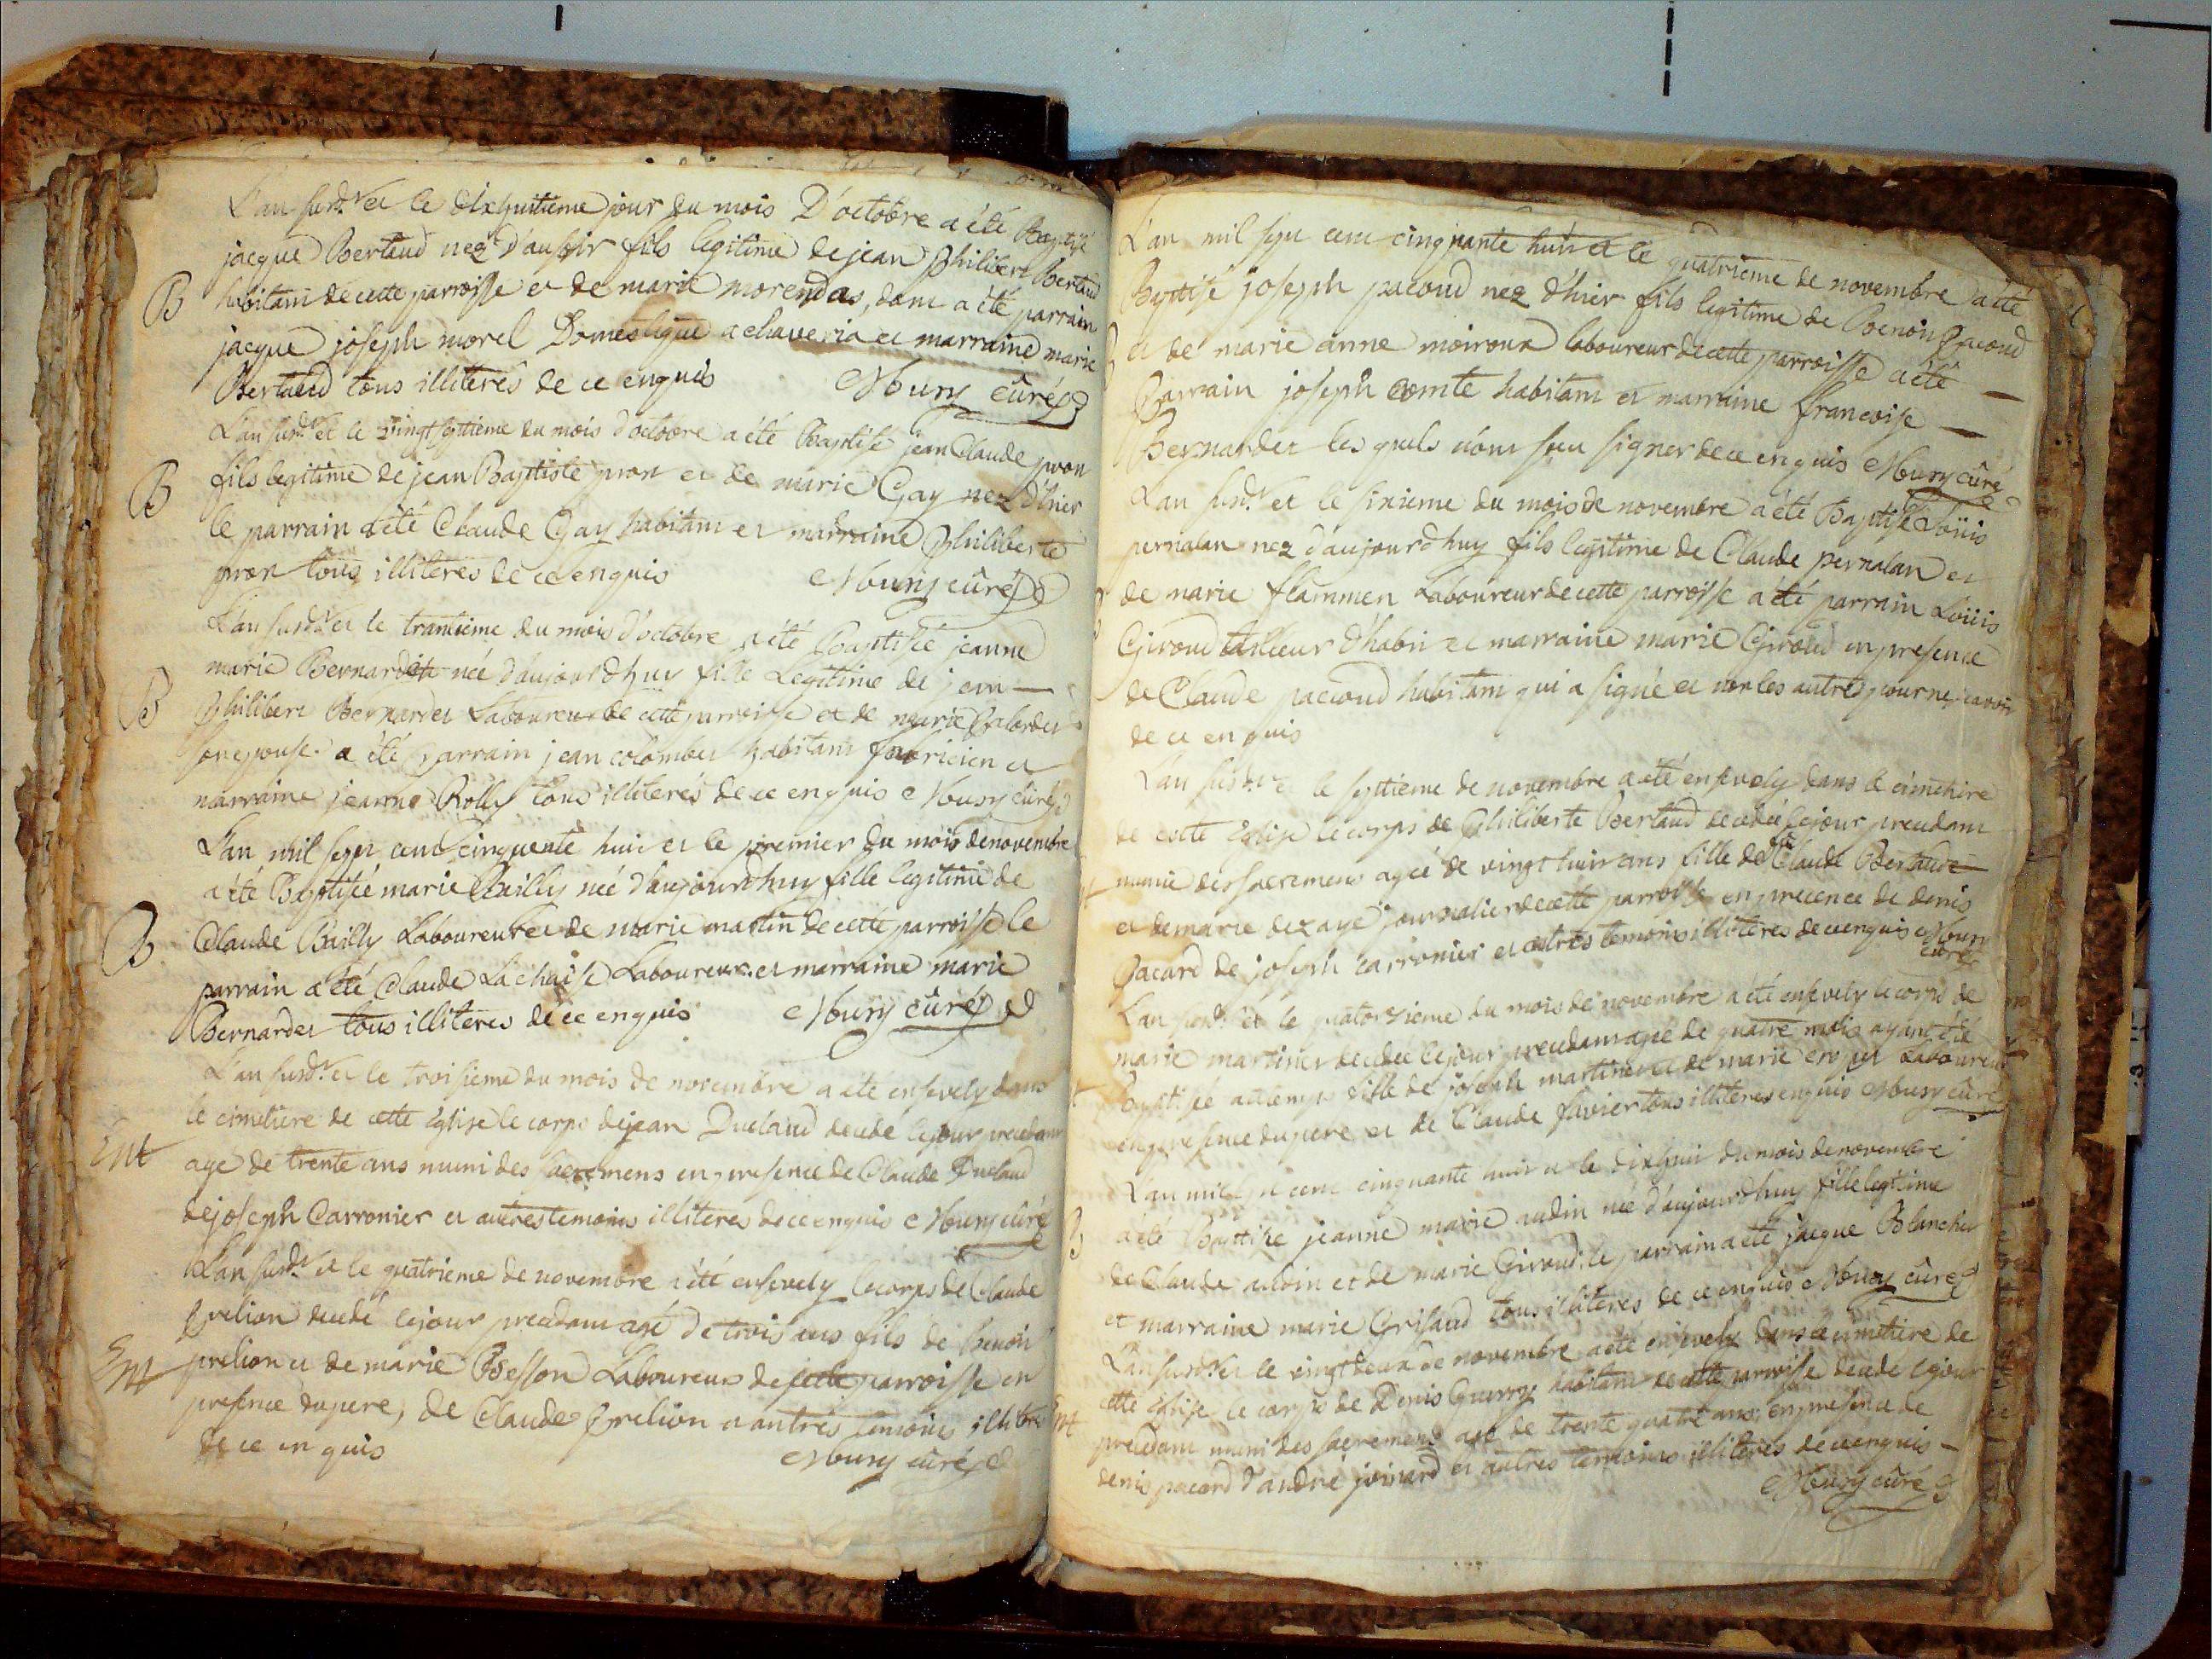 L'an susd.t et le dixhuitieme jour du mois D'octobre a été Baptisé
jacque Bertaud nez d'au soir fils legitime de jean philibert Bertaud
B habitant de cette parroisse et de marie morendas, dont a été parrain
jacque joseph morel Domestique a chaveria et marraine marie
Bertaud tous illiterés de ce enquis Mbury curé
L'an susd.t et le vingt septieme du mois d'octobre a été Baptisé jean Claude pron
B fils legitime de jean Baptiste pron et de marie Gay nez d'hier
le parrain a été Claude Gay habitant et marraine philiberte
pron tous illiteres de ce enquis Mbury curé
L'an susd.t et le trantieme du mois d'octobre a été Baptisée jeanne
marie Bernardet née d'aujourdhuy fille Legitime de jean —
B philibert Bernardet Laboureur de cette parroisse et de marie
son epouse a été parrain jean colombet habitant et
marraine jeanne Rolly tous illiterés de ce enquis Mbury curé
L'an mil sept cent cinquante huit et le premier du mois de novembre
a été Baptisée marie Bailly née d'aujourdhuy fille legitime de
B Claude Bailly Laboureur et de marie martin de cette parroisse le
parrain a été Claude La chaise Laboureur et marraine marie
Bernardet tous illiteres de ce enquis Mbury curé
L'an susd.t et le troisieme du mois de novembre a été ensevely dans
le cimetiere de cette Eglise le corps de jean Duclaud decedé le jour precedant
Ent agé de trente ans muni des sacremens en presence de Claude Duclaud
de joseph Carronier et autres temoins illiteres de ce enquis Mbury curé
L'an susd.t et le quatrieme de novembre a été ensevely le corps de Claude
prelion decedé le jour precedant agé de trois ans fils de benoit
Ent prelion et de marie Besson Laboureur de cette parroisse en
presence du pere, de Claude prelion et autres temoins illiteres
de ce enquis Mbury curé
L'an mil sept cent cinquante huit et le quatrieme de novembre a été
Baptisé joseph pacoud nez d'hier fils legitime de Benoit pacoud
et de marie anne moiroux laboureur de cette parroisse a été —
Parrain joseph comte habitant et marraine francoise —
Bernardet les quels n'ont sceu signer de ce enquis Mbury curé
L'an susd.t et le sixieme du mois de novembre a été Baptisé Loüis
pernalan nez d'aujourdhuy fils legitime de Claude pernalan et
de marie flammen Laboureur de cette parroisse a été parrain Loüis
Giroud tailleur d'habit et marraine marie Giroud en presence
de Claude pacoud habitant qui a signé et non les autres pour ne scavoir
de ce enquis
L'an susd.t et le septieme de novembre a été ensevely dans le cimetiere
de cette Eglise le corps de philiberte Bertaud decedée le jour precedant
munie des sacremens agée de vingt huit ans fille de Claude Bertaud
et de marie dezaye journalier de cette parroisse en precence de denis
pacard de joseph carronier et autres temoins illiteres de ce enquis Mbury
curé
L'an susd.t et le quatorzieme du mois de novembre a été ensevely le corps de
marie martinet decedée le jour precedant agée de quatre mois ayant été
Baptisée fille de joseph martinet et de marie Laboureur
en presence du pere et de Claude favier tous illiteres enquis Mbury curé
L'an mil sept cent cinquante huit et le dixhuit du mois de novembre
B a été Baptisée jeanne marie audin née d'aujourdhuy fille legitime
de Claude audin et de marie Giroud, le parrain a été jacque Blanchet
et marraine marie Grisaud tous illiteres de ce enquis Mbury curé
L'an susd.t et le vingt deux de novembre a été ensevely dans le cimetiere de
cette Eglise le corps de Denis Guerry habitant de cette parroisse decedé le jour
Ent precedant muni des sacremens agé de trente quatre ans, en presence de
denis pacard d'andré joinard et autres temoins illiteres de ce enquis —
Mbury curé